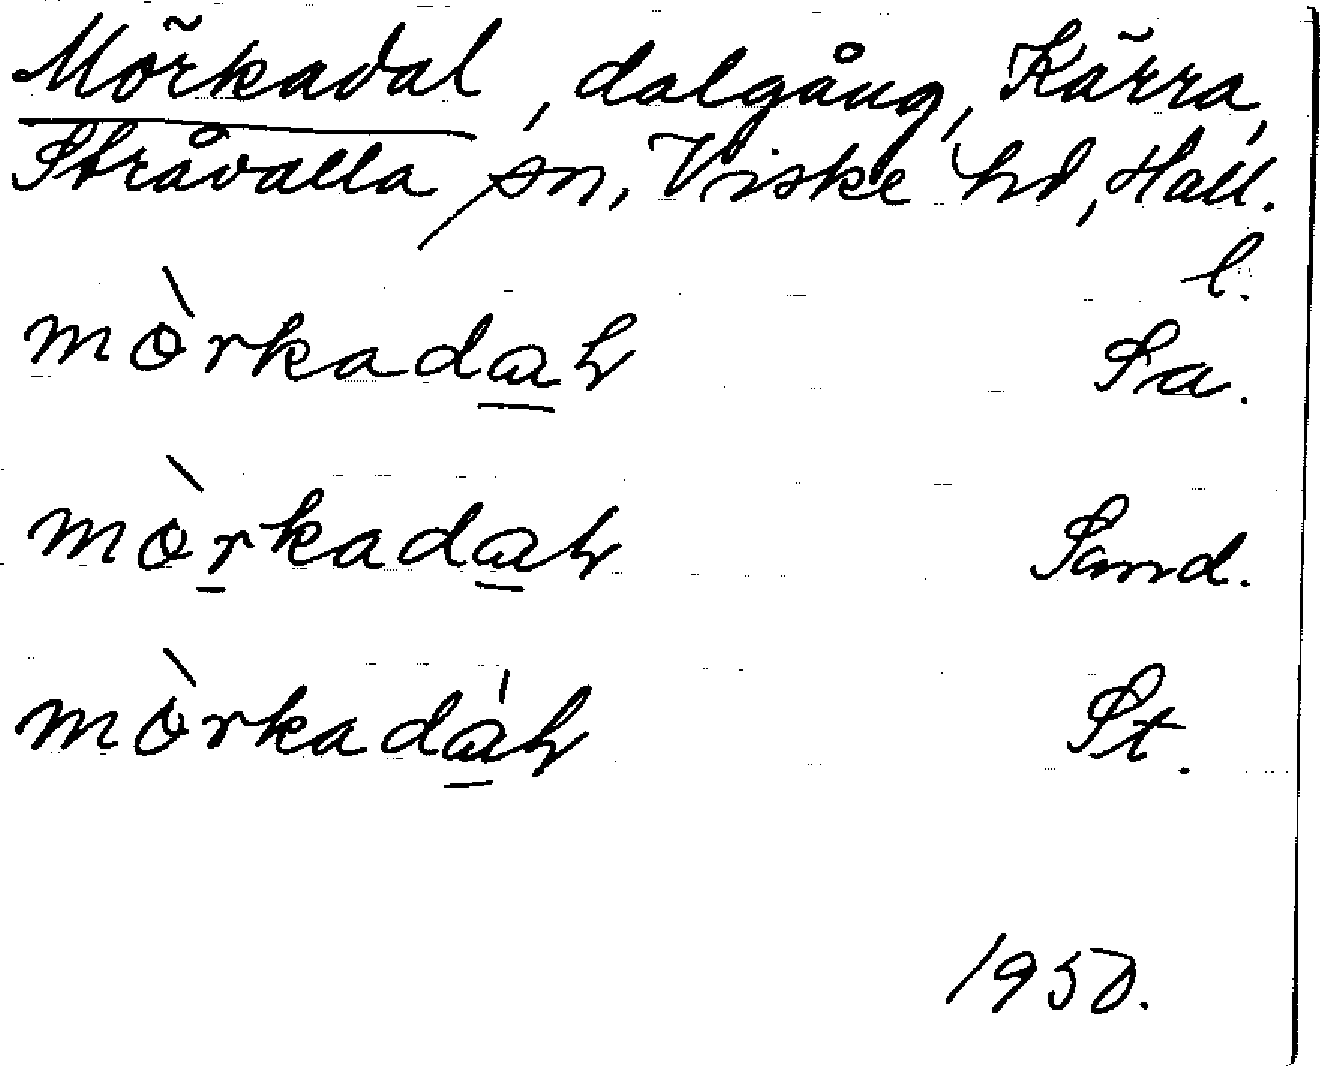 Mörkadal, dalgång, Kärra,
Stråvalla sn, Viske hd, Hall.
l.
mòrkadaɫ Sa.
mòrkadaɫ Sand.
mòrkadáɫ St.
1950.